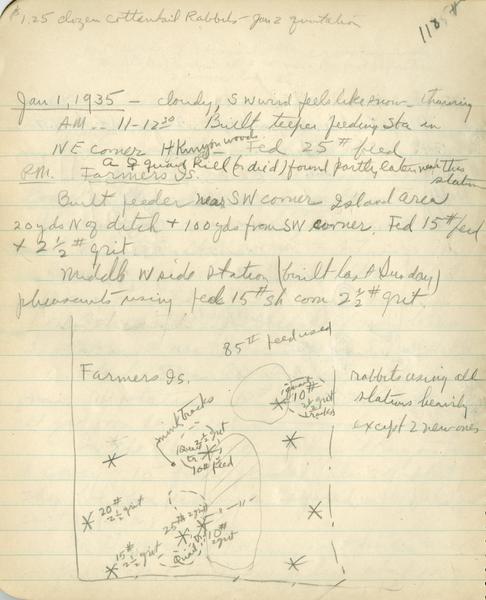 $1.25 dozen Cottontail Rabbits - Jan 2 quotation
118
Jan 1, 1935 - cloudy, SW wind feels like snow - thawing
AM -- 11-12 30 Built teepee feeding Sta in
NE corner H Runyon woods. Fed 25 # feed
a ♀ quail kill (or died) found partly eaten near this station
P.M. Farmers Is.
Built feeder near SW corner Island area
20 yds N of ditch + 100 yds from SW corner. Fed 15 # feed
+ 2 1/2 # grit
Middle W side station (built last Sunday)
pheasants using feed 15 # sh corn 2 1/2 # grit.
85 # feed used
Farmers Is.
quail
10 #
2 1/2 grit
tracks
rabbits using all
stations heavily
except 2 new ones
mink tracks
Quail
2 1/2 grit
tr
10 # feed
20 #
2 1/2 grit
25 # 2 grit
15 #
2 1/2 grit
Quail
10 #
2 grit